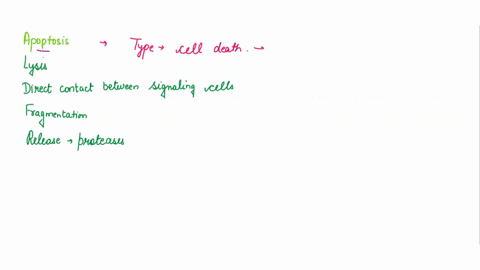 Apoptosis → Type → cell death. →
Lysis
Direct contact between signaling cells
Fragmentation
Release → proteases